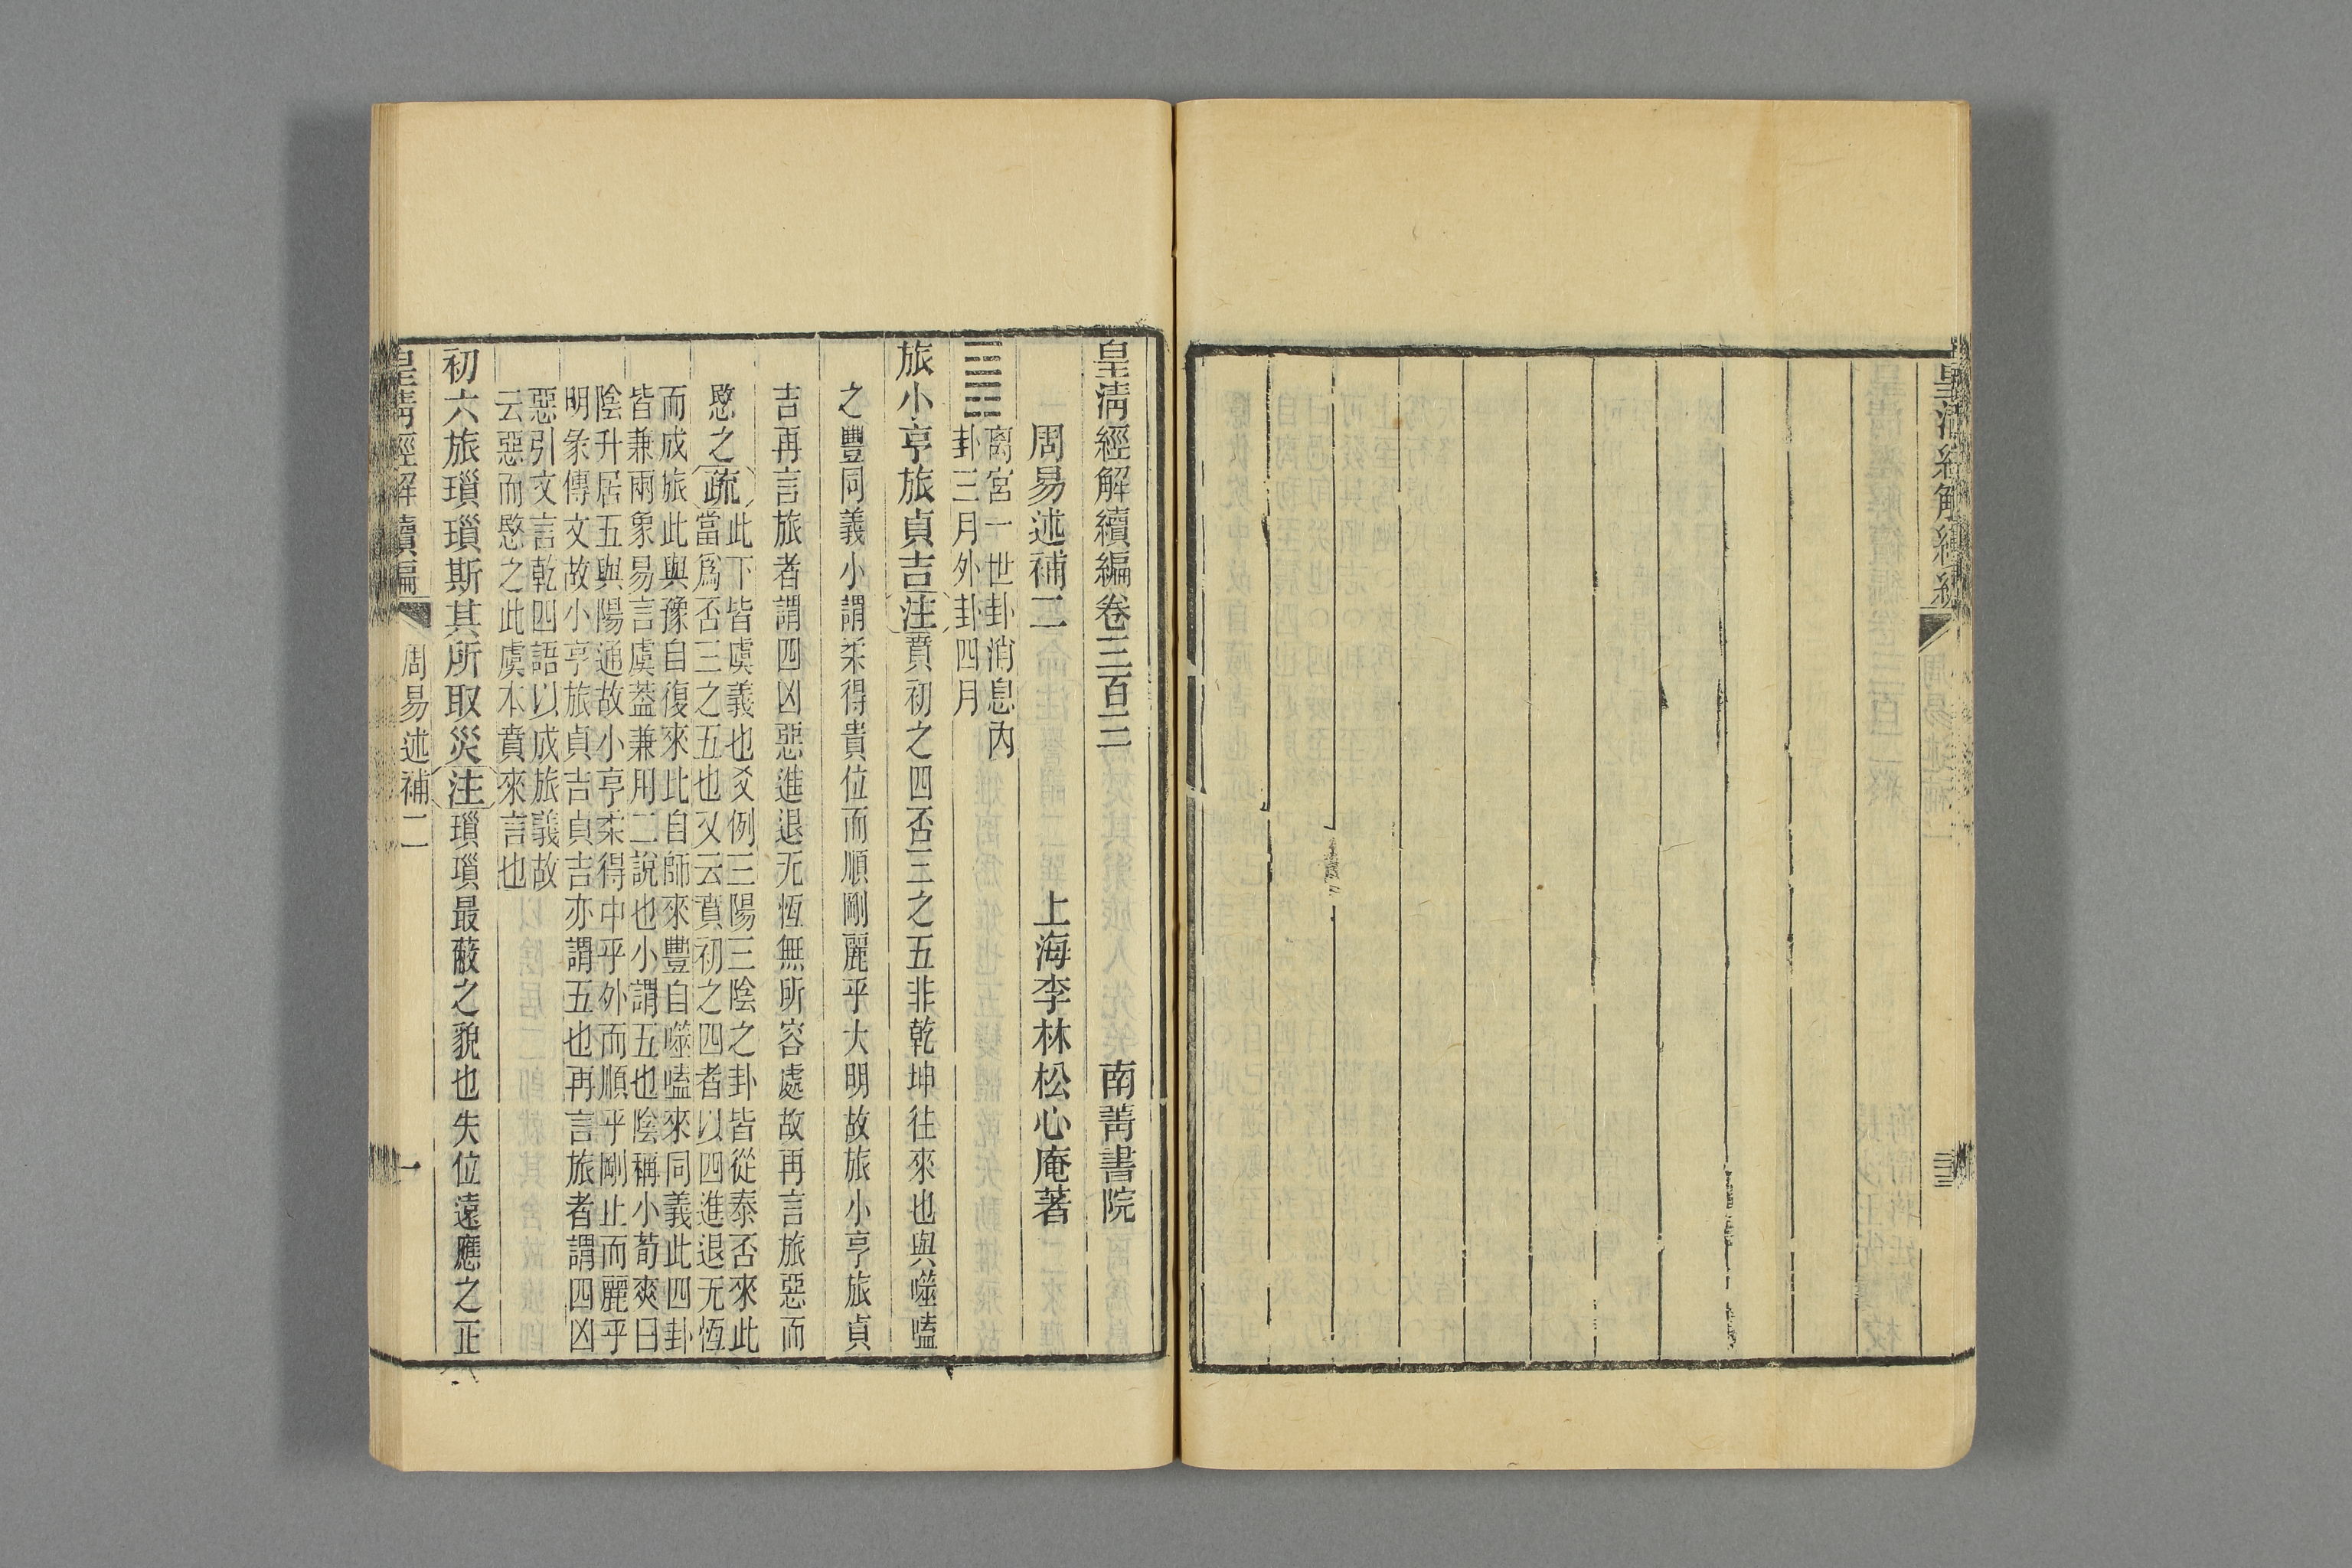 皇清經解續編
周易述補一
皇清經解續編卷三百三　南菁書院
周易述補二　上海李林松心庵著
離宮一世卦消息內
卦三月外卦四月
旅小亨旅貞吉注賁初之四否三之五非乾坤往來也與噬嗑
之豐同義小謂柔得貴位而順剛麗乎大明故旅小亨旅貞
吉再言旅者謂四凶惡進退无恆無所容處故再言旅惡而
愍之疏
此下皆虞義也爻例三陽三陰之卦皆從泰否來此
當爲否三之五也又云賁初之四者以四進退无恆
而成旅此與豫自復來比自師來豐自噬嗑來同義此四卦
皆兼兩象易言虞葢兼用二說也小謂五也陰稱小荀爽曰
陰升居五與陽通故小亨柔得中乎外而順乎剛止而麗乎
明彖傳文故小亨旅貞吉貞吉亦謂五也再言旅者謂四凶
惡引文言乾四語以成旅義故
云惡而愍之此虞本賁來言也
初六旅瑣瑣斯其所取災注瑣瑣最蔽之貌也失位遠應之正
皇清經解續編
周易述補二
一